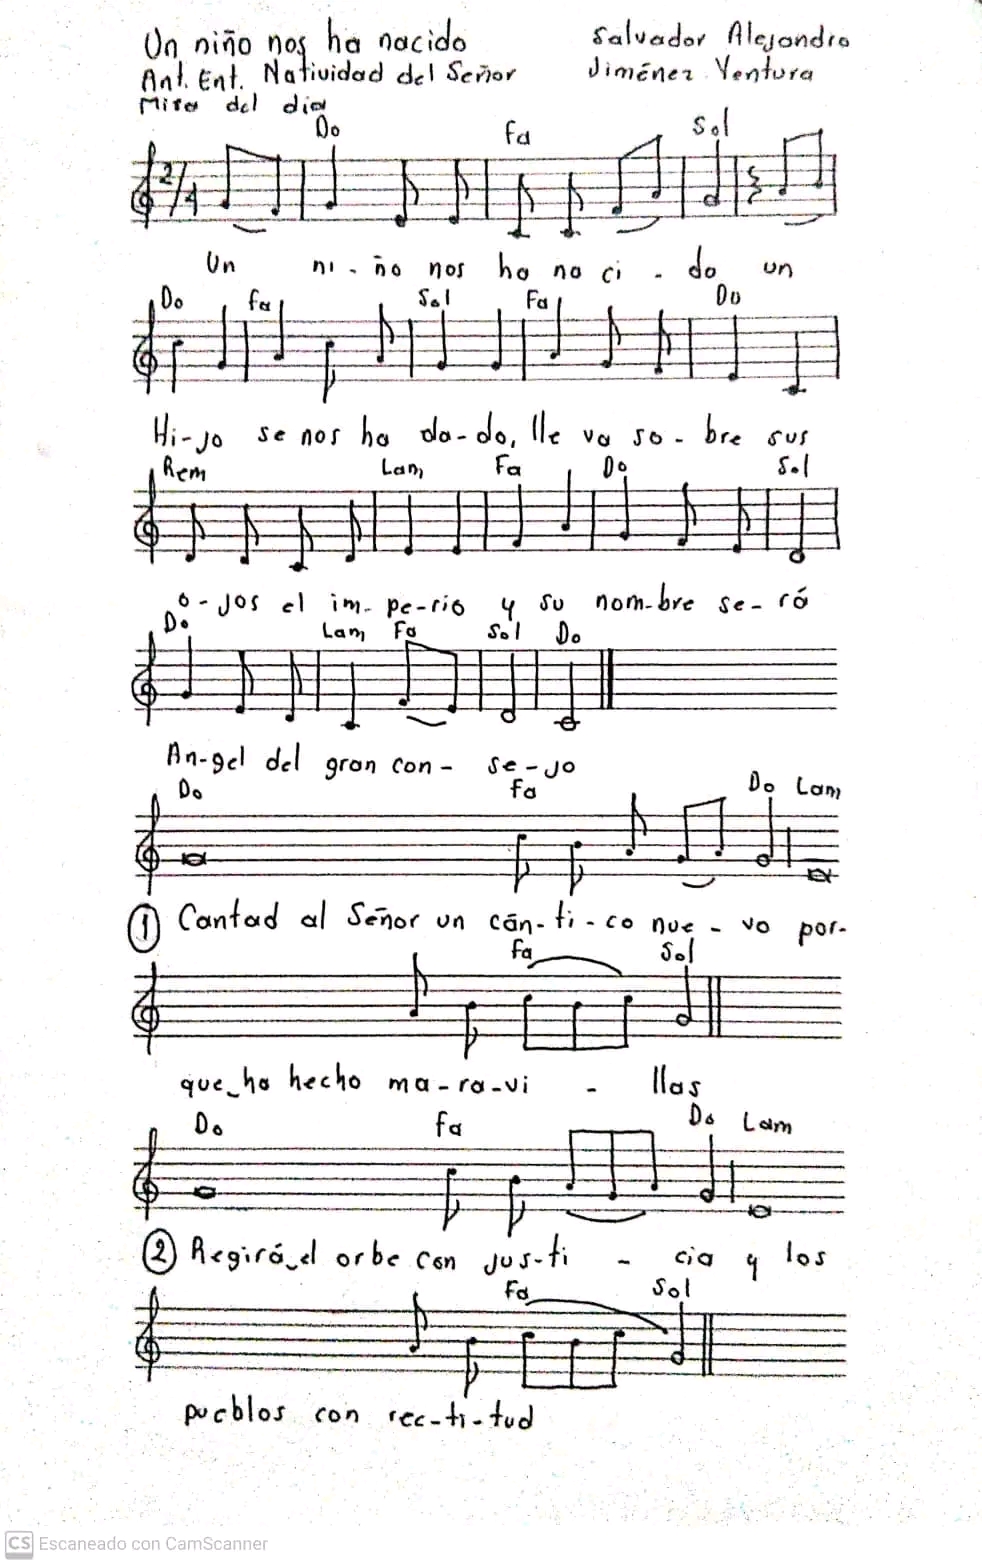 Un niño nos ha nacido Salvador Alejandro
Ant. Ent. Natividad del Señor Jiménez Ventura
Misa del día
Do Fa Sol
2/4
Un ni - ño nos ha na ci - do un
Do Fa Sol Fa Do
Hi-jo se nos ha da-do, lle va so - bre sus
Rem Lam Fa Do Sol
o-jos el im-pe-rio y su nom-bre se-rá
Do Lam Fa Sol Do
An-gel del gran con - se-jo
Do Fa Do Lam
① Cantad al Señor un cán-ti-co nue-vo por-
Fa Sol
que ha hecho ma-ra-vi - llas
Do Fa Do Lam
② Regirá el orbe con jus-ti - cia y los
Fa Sol
pueblos con rec-ti-tud
CS Escaneado con CamScanner